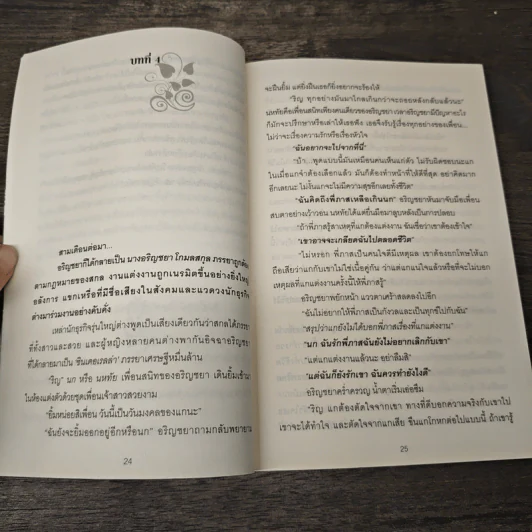 บทที่ 4
สามเดือนต่อมา...
อริญชยาก็ได้กลายเป็น นางอริญชยา โกมลสกุล ภรรยาถูกต้อง
ตามกฎหมายของสกล งานแต่งงานถูกเนรมิตขึ้นอย่างยิ่งใหญ่
อลังการ แขกเหรื่อที่มีชื่อเสียงในสังคมและแวดวงนักธุรกิจ
ต่างมาร่วมงานอย่างคับคั่ง
เหล่านักธุรกิจรุ่นใหญ่ต่างพูดเป็นเสียงเดียวกันว่าสกลได้ภรรยา
ที่ทั้งสาวและสวย และผู้หญิงหลายคนต่างพากันอิจฉาอริญชยา
ที่ได้กลายมาเป็น ซินเดอเรลล่า ภรรยาเศรษฐีหมื่นล้าน
“ริญ” นก หรือ นทหัย เพื่อนสนิทของอริญชยา เดินยิ้มเข้ามา
ในห้องแต่งตัวด้วยชุดเพื่อนเจ้าสาวสวยงาม
“ยิ้มหน่อยสิเพื่อน วันนี้เป็นวันมงคลของแกนะ”
“ฉันยังจะยิ้มออกอยู่อีกหรือนก” อริญชยาถามกลับพยายาม
24
จะฝืนยิ้ม แต่ยิ่งฝืนเธอก็ยิ่งอยากจะร้องไห้
“ริญ ทุกอย่างมันมาไกลเกินกว่าจะถอยหลังกลับแล้วนะ”
นทหัยคือเพื่อนสนิทเพียงคนเดียวของอริญชยา เวลาอริญชยามีปัญหาอะไร
ก็มักจะปรึกษาหรือเล่าให้เธอฟัง เธอจึงรับรู้เรื่องทุกอย่างของเพื่อน...
ไม่ว่าจะเรื่องความรักหรือเรื่องหัวใจ
“ฉันอยากจะไปจากที่นี่”
“บ้า...พูดแบบนี้มันเหมือนคนเห็นแก่ตัว ไม่รับผิดชอบนะแก
ในเมื่อแกจำต้องเลือกแล้ว มันก็ต้องทำหน้าที่ให้ดีที่สุด อย่าคิดมาก
อีกเลยนะ ไม่งั้นแกจะไม่มีความสุขอีกเลยทั้งชีวิต”
“ฉันคิดถึงพี่ภาสเหลือเกินนก” อริญชยาหันมาจับมือเพื่อน
สบตาอย่างเว้าวอน นทหัยได้แต่ยื่นมือมาลูบหลังเป็นการปลอบ
“ถ้าพี่ภาสรู้สาเหตุที่แกแต่งงาน ฉันเชื่อว่าเขาต้องเข้าใจ”
“เขาอาจจะเกลียดฉันไปตลอดชีวิต”
“ไม่หรอก พี่ภาสเป็นคนใจดีมีเหตุผล เขาต้องยกโทษให้แก
ถ้าแกมั่นใจแล้วหรือที่จะไม่บอก
เหตุผลที่แกแต่งงานครั้งนี้ให้พี่ภาสรู้”
อริญชยาพยักหน้า แววตาเศร้าสลดลงไปอีก
“ฉันไม่อยากให้พี่ภาสเป็นกังวลและเป็นทุกข์ไปกับฉัน”
“สรุปว่าแกยังไม่ได้บอกพี่ภาสเรื่องที่แกจะแต่งงาน”
“นก ฉันรักพี่ภาสฉันยังไม่อยากเลิกกับเขา”
“แต่แกแต่งงานแล้วนะ อย่าลืมสิ”
“แต่ฉันก็ยังรักเขา ฉันควรทำยังไงดี”
อริญชยาคร่ำครวญ น้ำตาเริ่มเอ่อซึม
“ริญ แกต้องตัดใจจากเขา ทางที่ดีบอกความจริงกับเขาไป
เขาจะได้ทำใจ และตัดใจจากแกเสีย ขืนแกโกหกต่อไปแบบนี้ ถ้าเขารู้
25